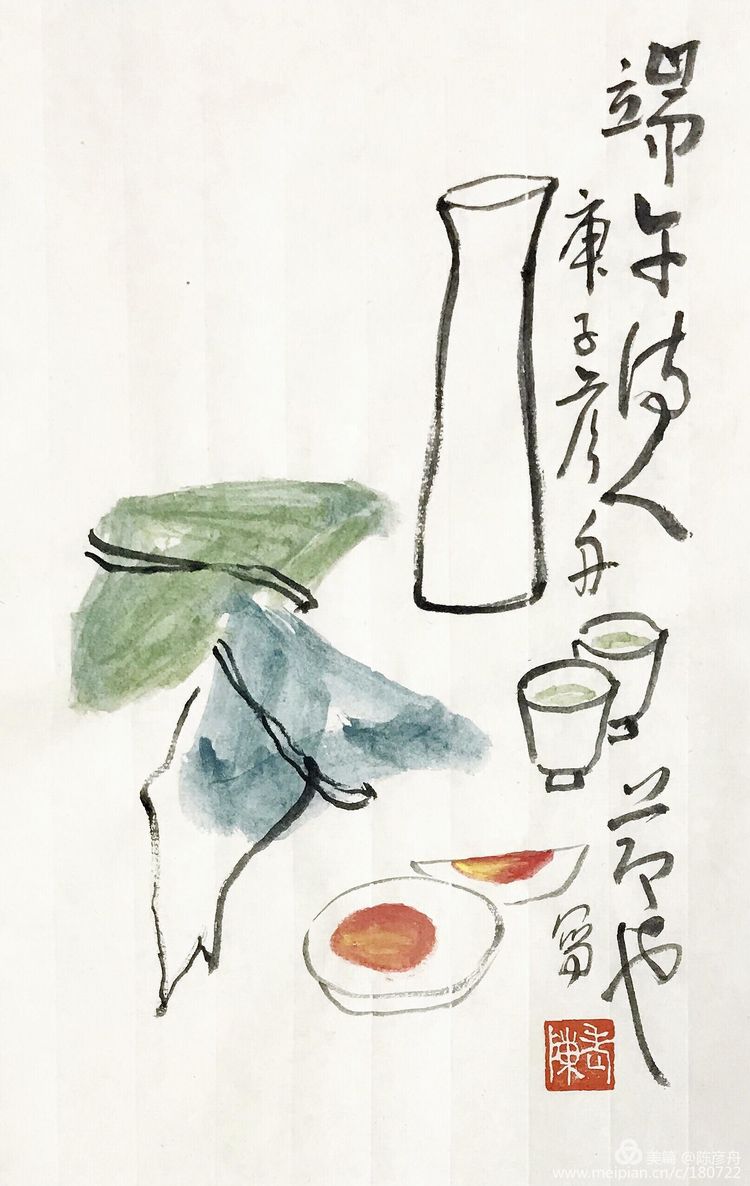 端午诗人之节也
庚子彦舟
写
陳
美篇 @陈彦舟
www.meipian.cn/c/180722